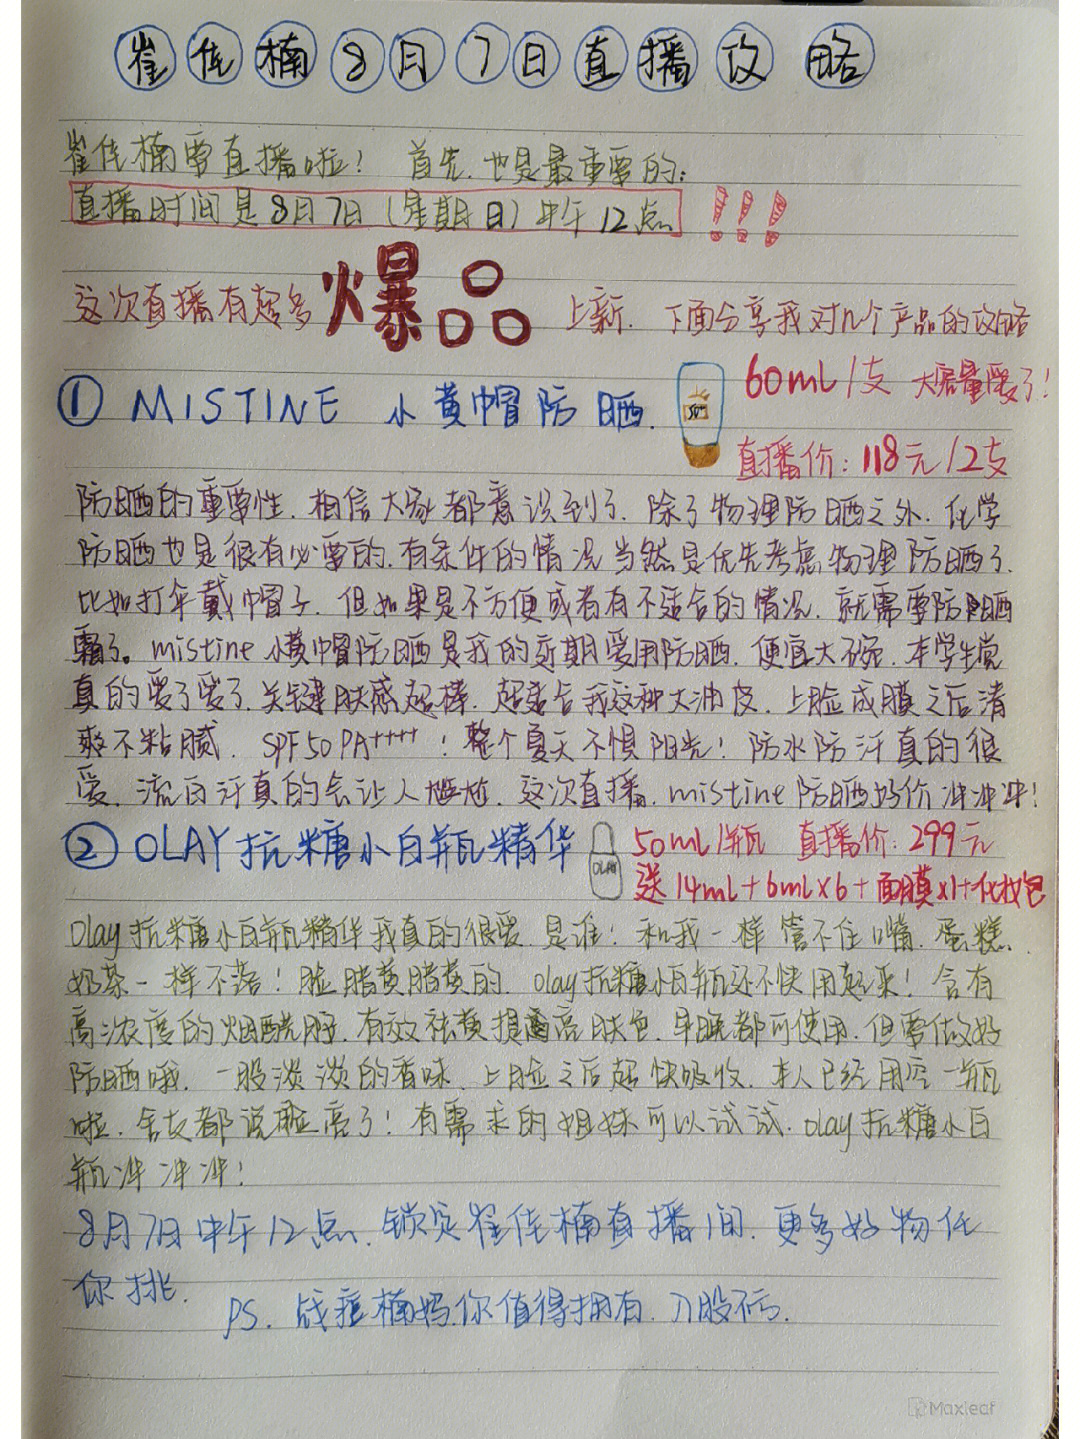 崔佳楠8月7日直播攻略
崔佳楠要直播啦！首先.也是最重要的：
直播时间是8月7日（星期日）中午12点！！！
这次直播有超多爆品上新.下面分享我对几个产品的攻略
① MISTINE 小黄帽防晒.
50+
60ml/支 大容量爱了！
直播价：118元/2支
防晒的重要性.相信大家都意识到了.除了物理防晒之外.化学
防晒也是很有必要的.有条件的情况当然是优先考虑物理防晒了.
比如打伞戴帽子.但如果是不方便或者有不适合的情况.就需要防晒
霜了。mistine小黄帽防晒是我的近期爱用防晒.便宜大碗.本学生党
真的爱了爱了.关键肤感超棒.超适合我这种大油皮.上脸成膜之后清
爽不粘腻.SPF50PA++++！整个夏天不惧阳光！防水防汗真的很
爱.流白汗真的会让人尴尬.这次直播.mistine防晒好价冲冲冲！
② OLAY抗糖小白瓶精华
OLAY
50ml/瓶 直播价：299元
送14ml+6ml×6+面膜×1+化妆包
Olay抗糖小白瓶精华我真的很爱.是谁！和我一样管不住嘴.蛋糕.
奶茶一样不落！脸腊黄腊黄的.olay抗糖小白瓶还不快用起来！含有
高浓度的烟酰胺.有效祛黄提亮肤色.早晚都可使用.但要做好
防晒哦.一股淡淡的香味.上脸之后超快吸收.本人已经用空一瓶
啦.舍友都说脸亮了！有需求的姐妹可以试试.olay抗糖小白
瓶冲冲冲！
8月7日中午12点.锁定崔佳楠直播间.更多好物任
你挑.
PS.战痘楠妈.你值得拥有.入股不亏.
Maxleaf